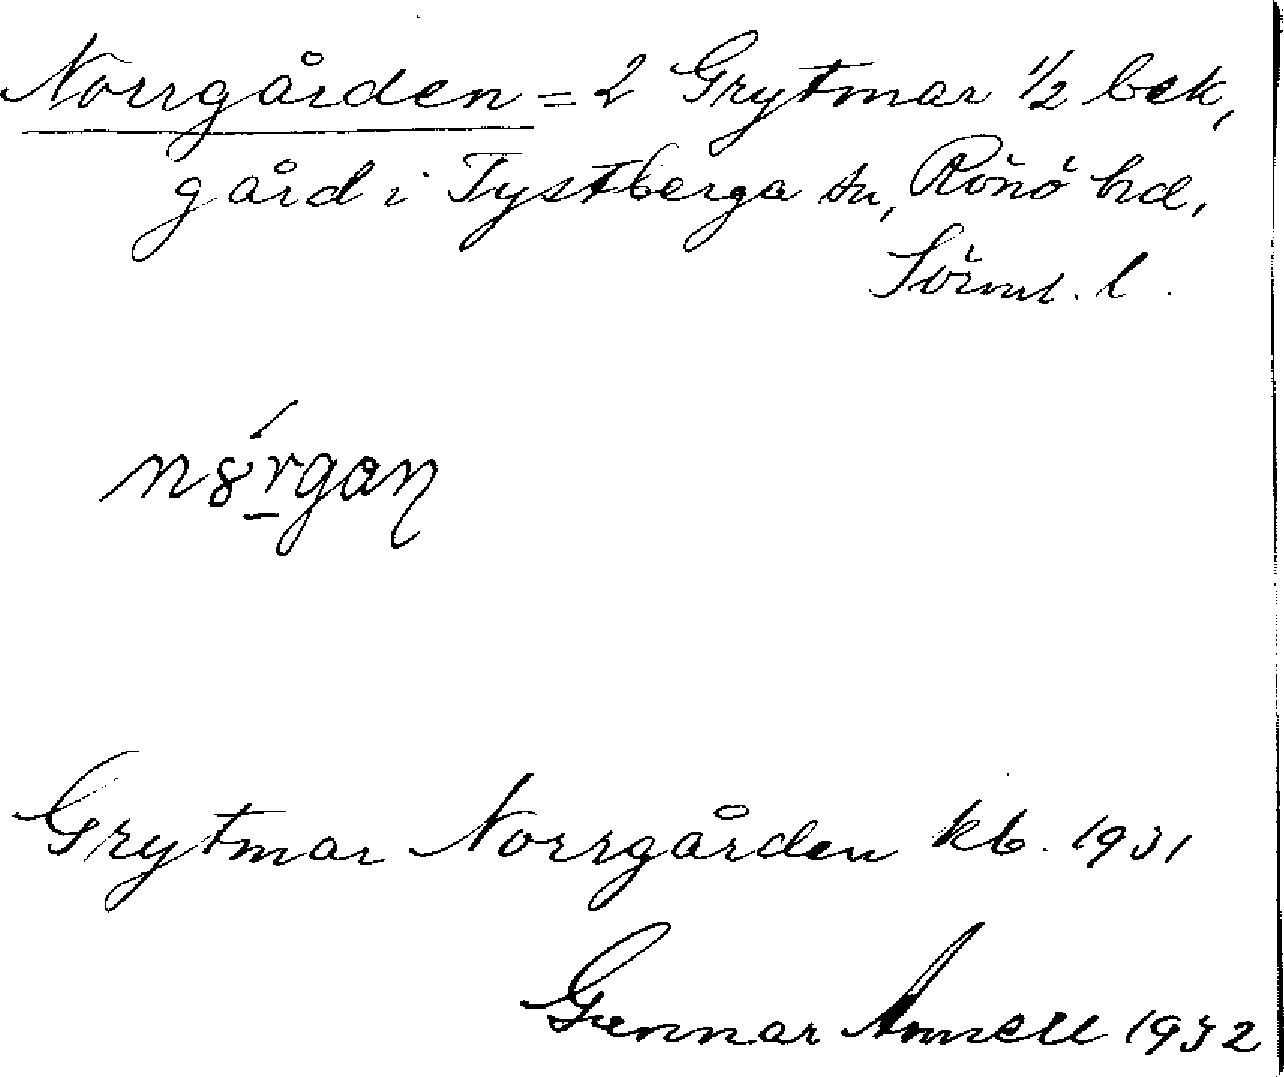 Norrgården = 2 Grytmar 1/2 bek,
gård i Tystberga sn, Rönö hd,
Sörml. l.
Grytmar Norrgården kb. 1931
Gunnar Annell 1932